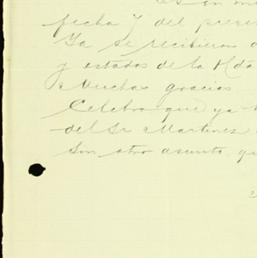 es en m
fecha 7 del presen
Ya se recibieron
y estados de la Hda
Muchas gracias
Celebro que ya
del Sr Martinez
Sin otro asunto, qu